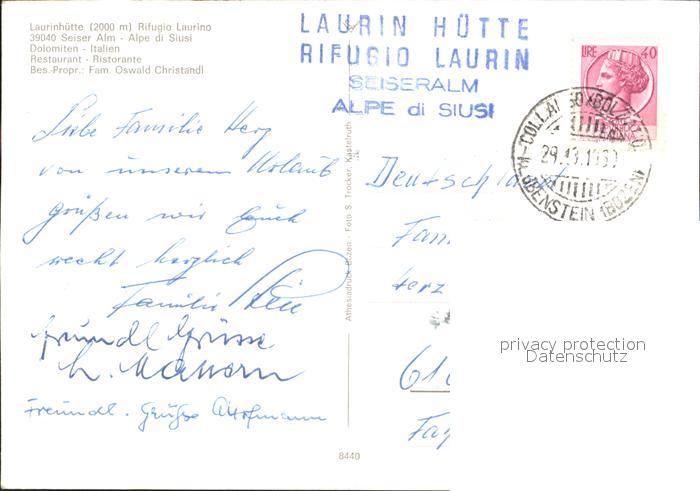 Laurinhütte (2000 m) Rifugio Laurino
39040 Seiser Alm - Alpe di Siusi
Dolomiten - Italien
Restaurant - Ristorante
Bes.-Propr.: Fam. Oswald Christandl
LAURIN HÜTTE
RIFUGIO LAURIN
SEISERALM
ALPE di SIUSI
LIRE 40
Liebe Familie Herz
von unserem Urlaub
grüßen wir Euch
recht herzlich
Familie
Freundl Grüsse
Freundl. Grüße
Athesiadruck Bozen - Foto S. Trocker, Kastelruth
Deutschland
Fam
Herz
privacy protection
Datenschutz
8440